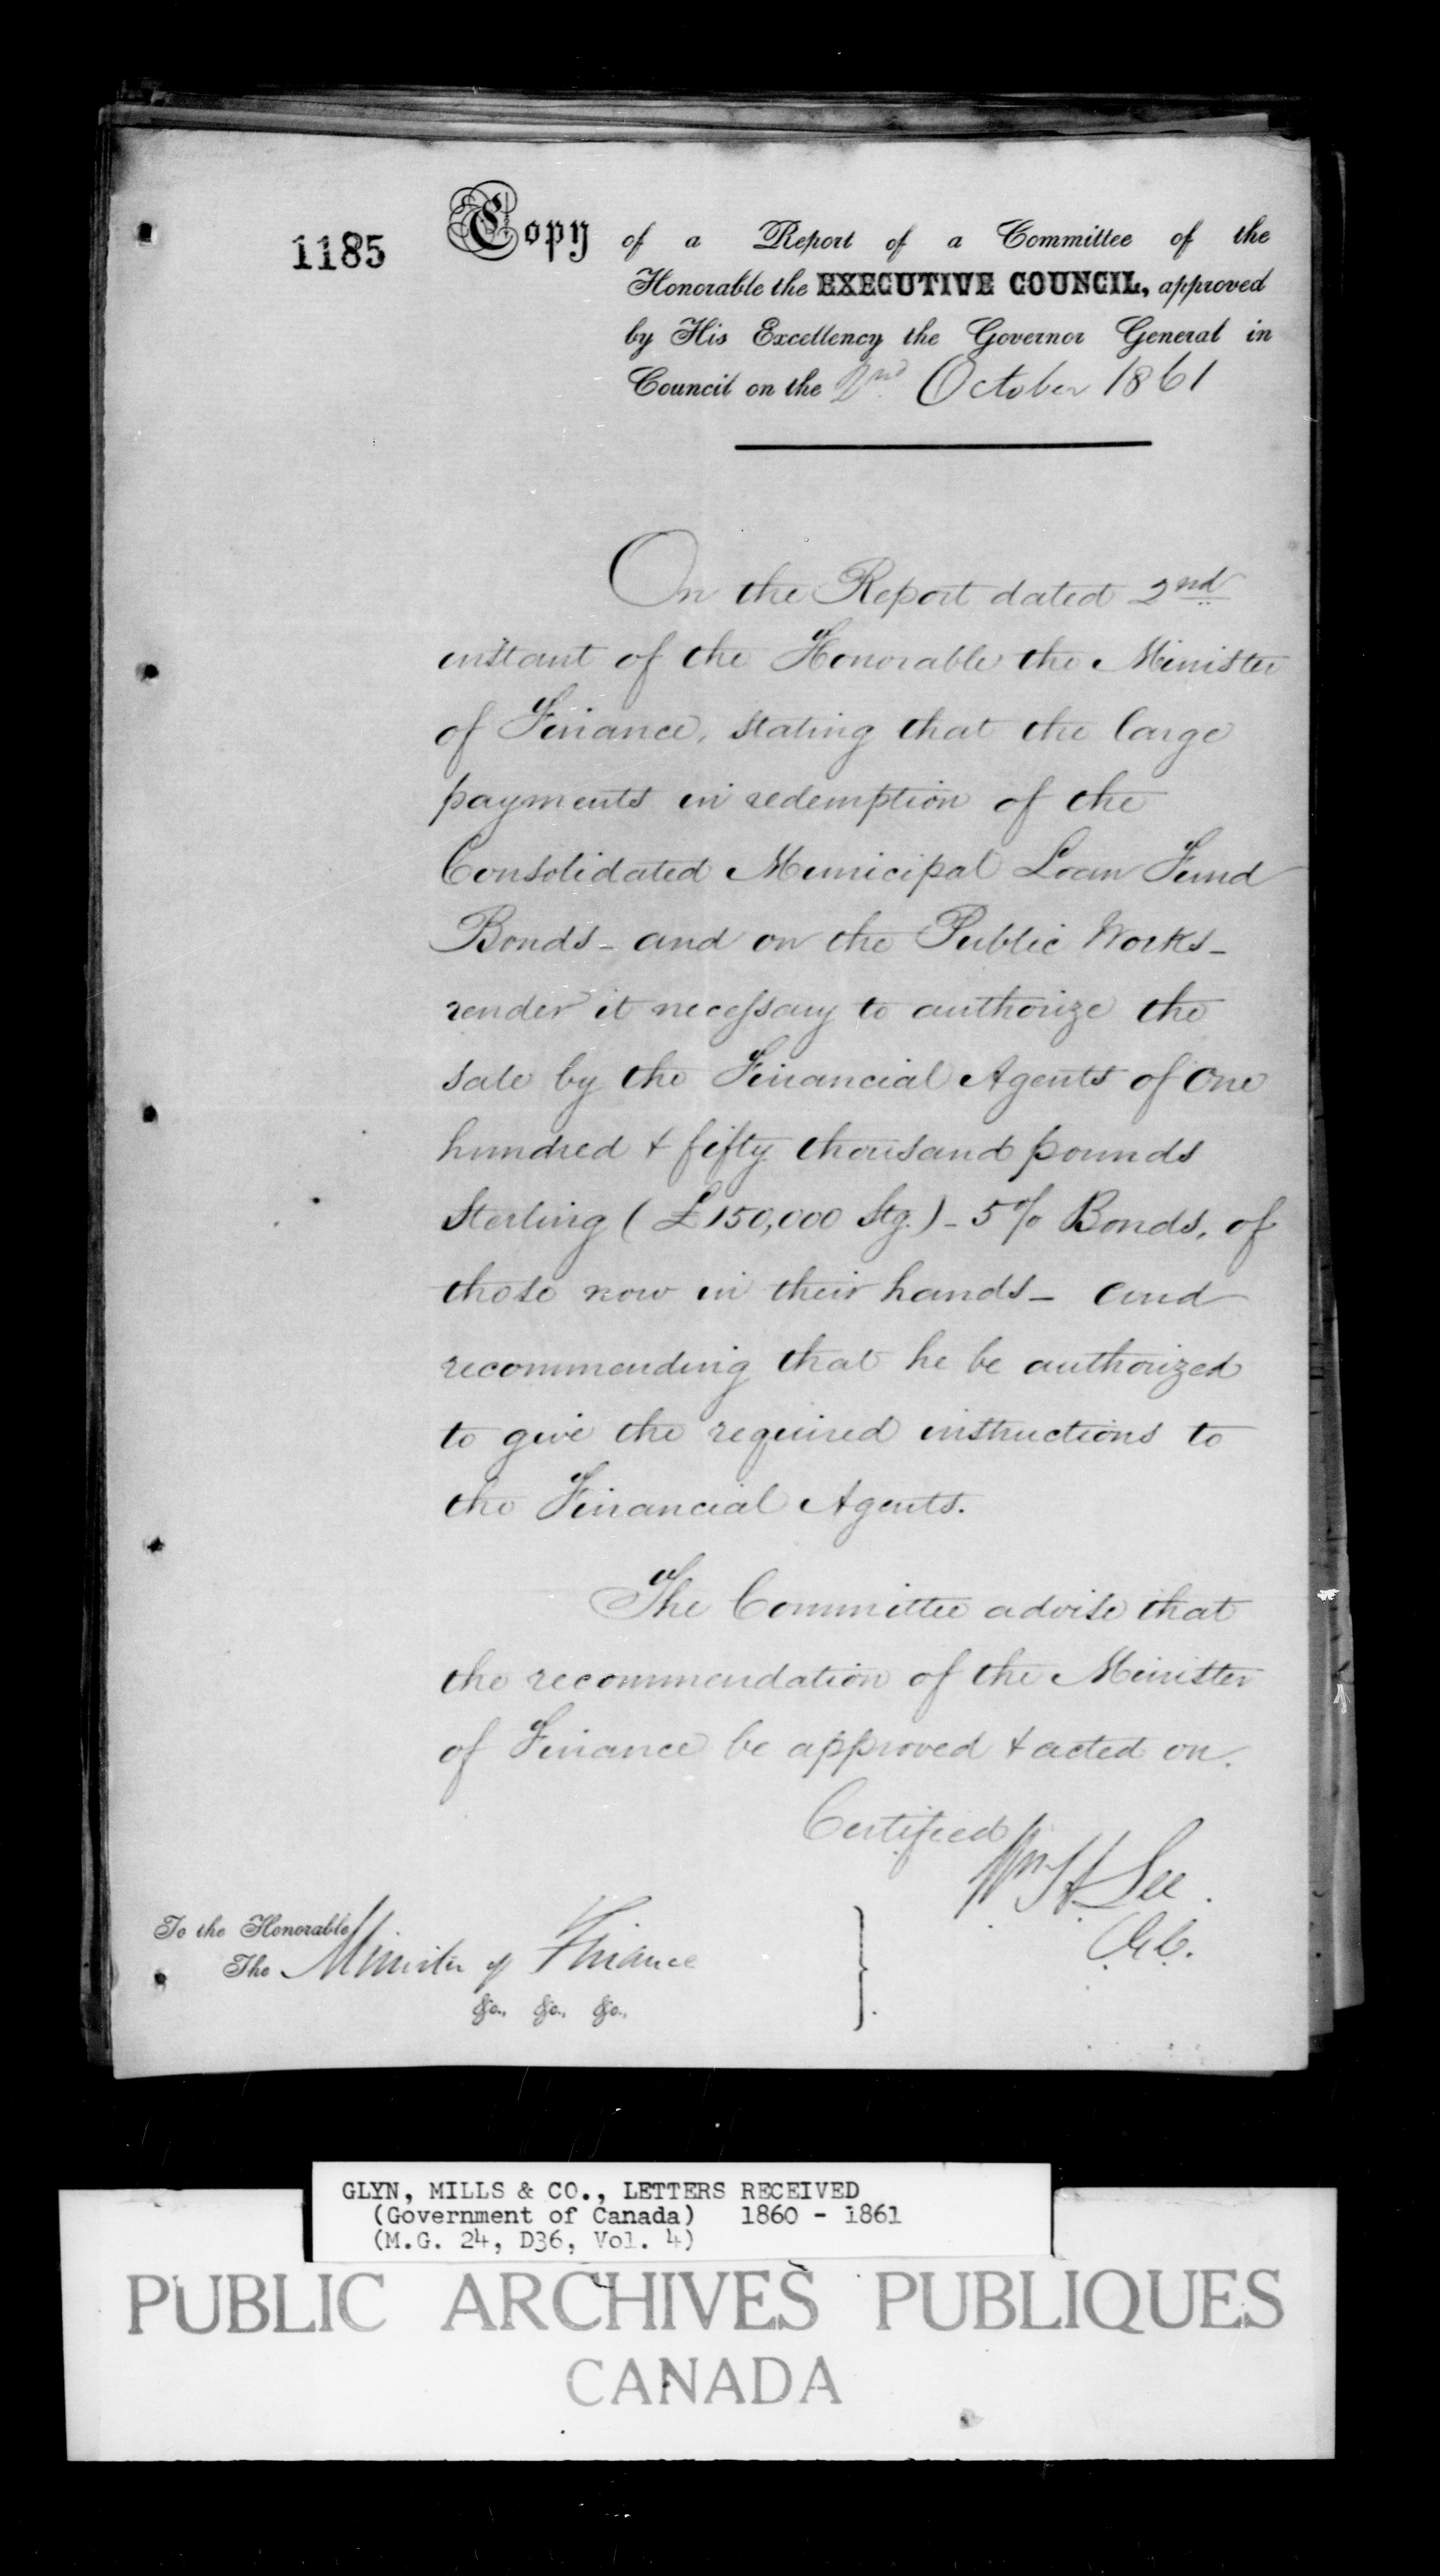 1185
Copy of a Report of a Committee of the
Honorable the EXECUTIVE COUNCIL, approved
by His Excellency the Governor General in
Council on the 2nd October 1861
On the Report dated 2nd
instant of the Honorable the Minister
of Finance, stating that the large
payments in redemption of the
Consolidated Municipal Loan Fund
Bonds - and on the Public Works -
render it necessary to authorize the
sale by the Financial Agents of One
hundred & fifty thousand pounds
Sterling (£150,000 Stg.) - 5% Bonds, of
those now in their hands - and
recommending that he be authorized
to give the required instructions to
the Financial Agents.
The Committee advise that
the recommendation of the Minister
of Finance be approved & acted on.
Certified
Wm H Lee.
C.E.C.
To the Honorable
The Minister of Finance
&c., &c., &c.,
GLYN, MILLS & CO., LETTERS RECEIVED
(Government of Canada) 1860 - 1861
(M.G. 24, D36, Vol. 4)
PUBLIC ARCHIVES PUBLIQUES
CANADA